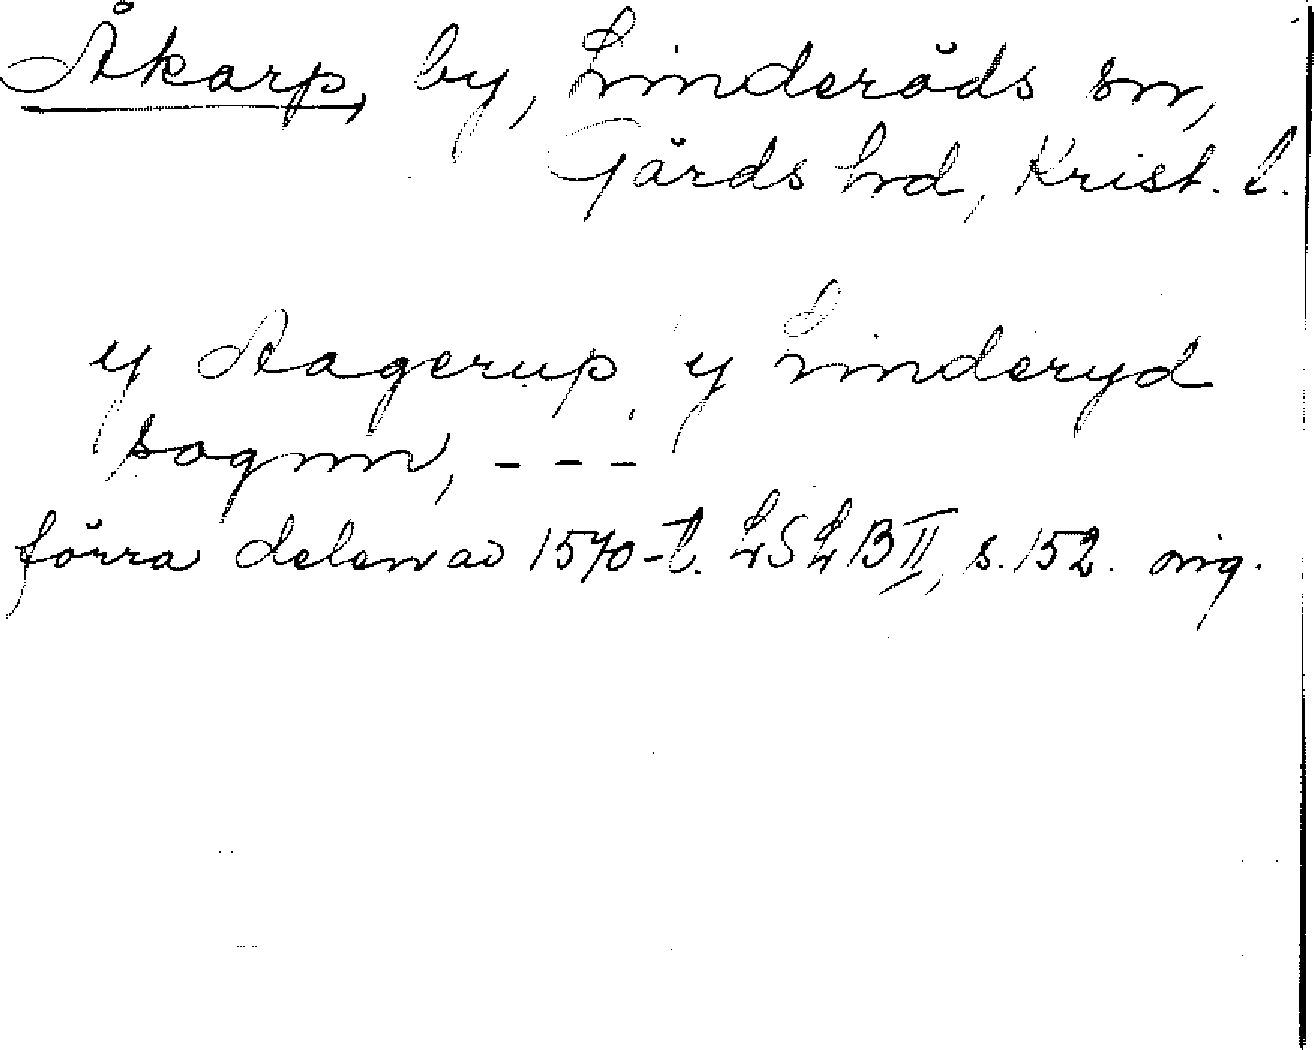 Åkarp, by, Linderöds sn,
Gärds hd, Krist. l.
y Aagerup y Linderyd
sognn, - - -
förra delen av 1570-t. LSLB II, s. 152. orig.